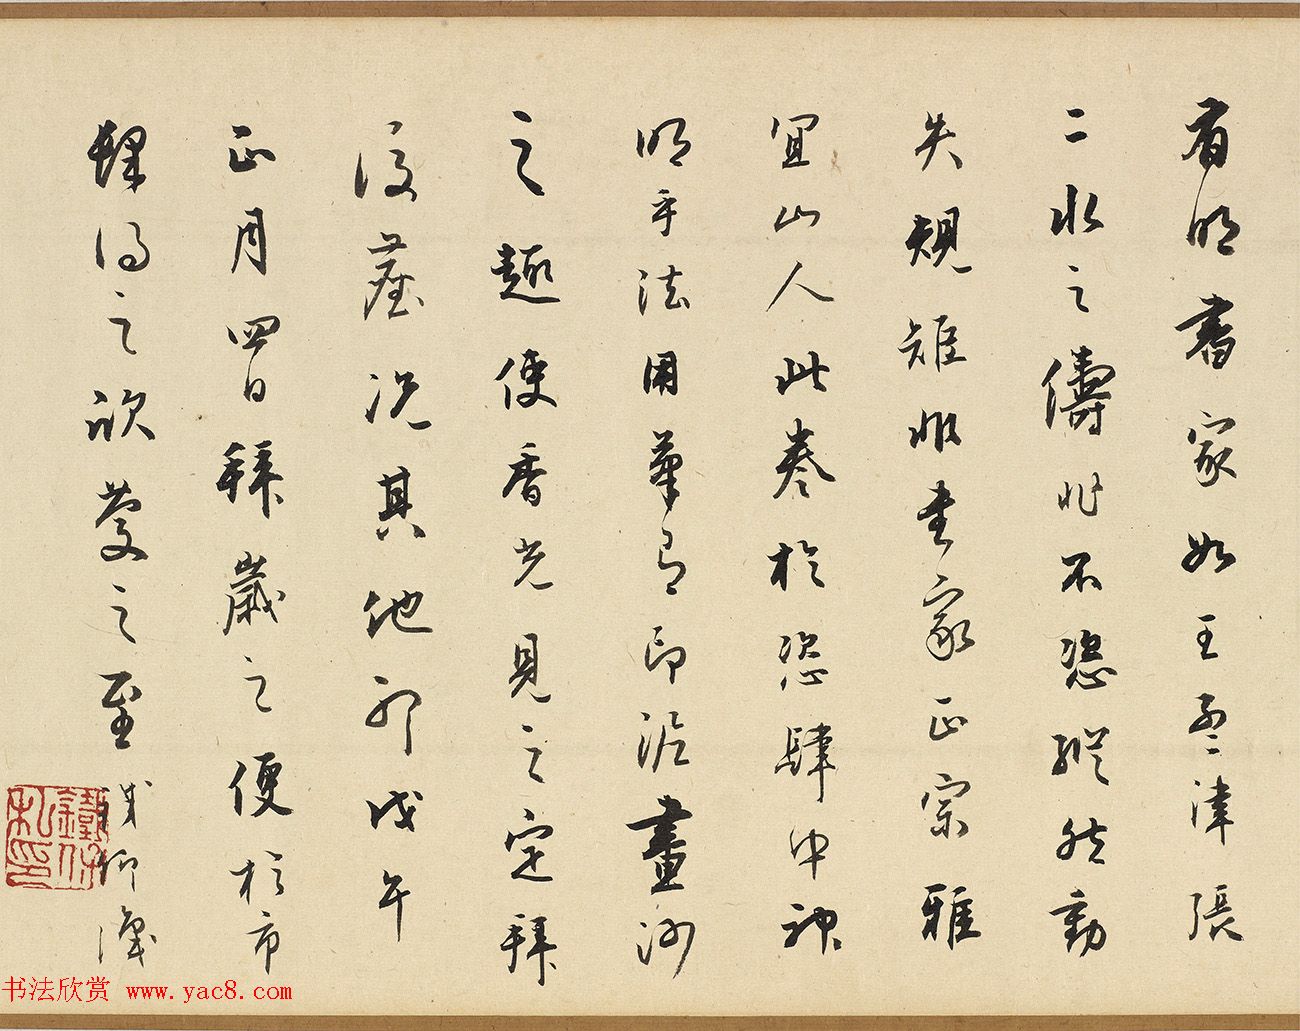 有明書家如王孟津張
二水之儔非不恣縱然動
失規矩非書家正宗雅
宜山人此卷於恣肆中神
明乎法用筆有印泥畫沙
之趣使香光見之定拜
後塵況其他耶戊午
正月四日拜歲之便於市
肆得之欣慶之至
鐵保私印
书法欣赏 www.yac8.com